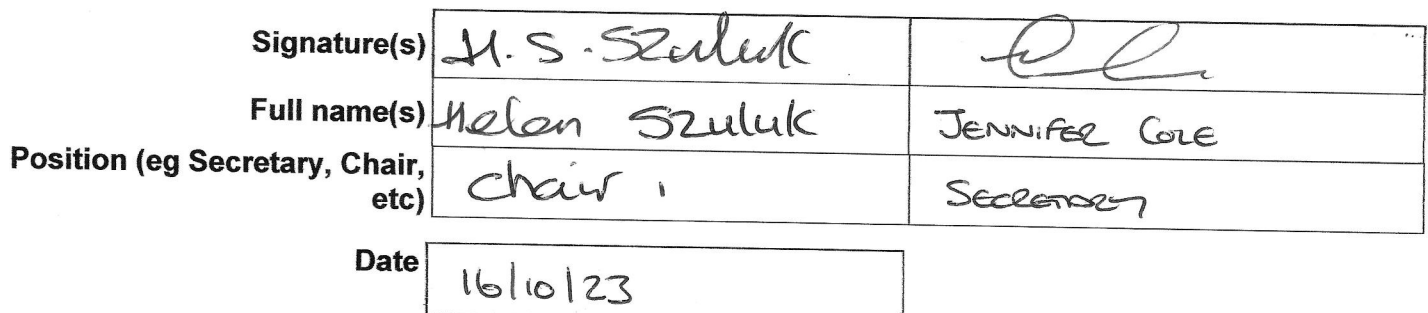 Signature(s) H. S. Szuluk
Full name(s) Helen Szuluk JENNIFER COLE
Position (eg Secretary, Chair, etc) Chair SECRETARY
Date 16/10/23